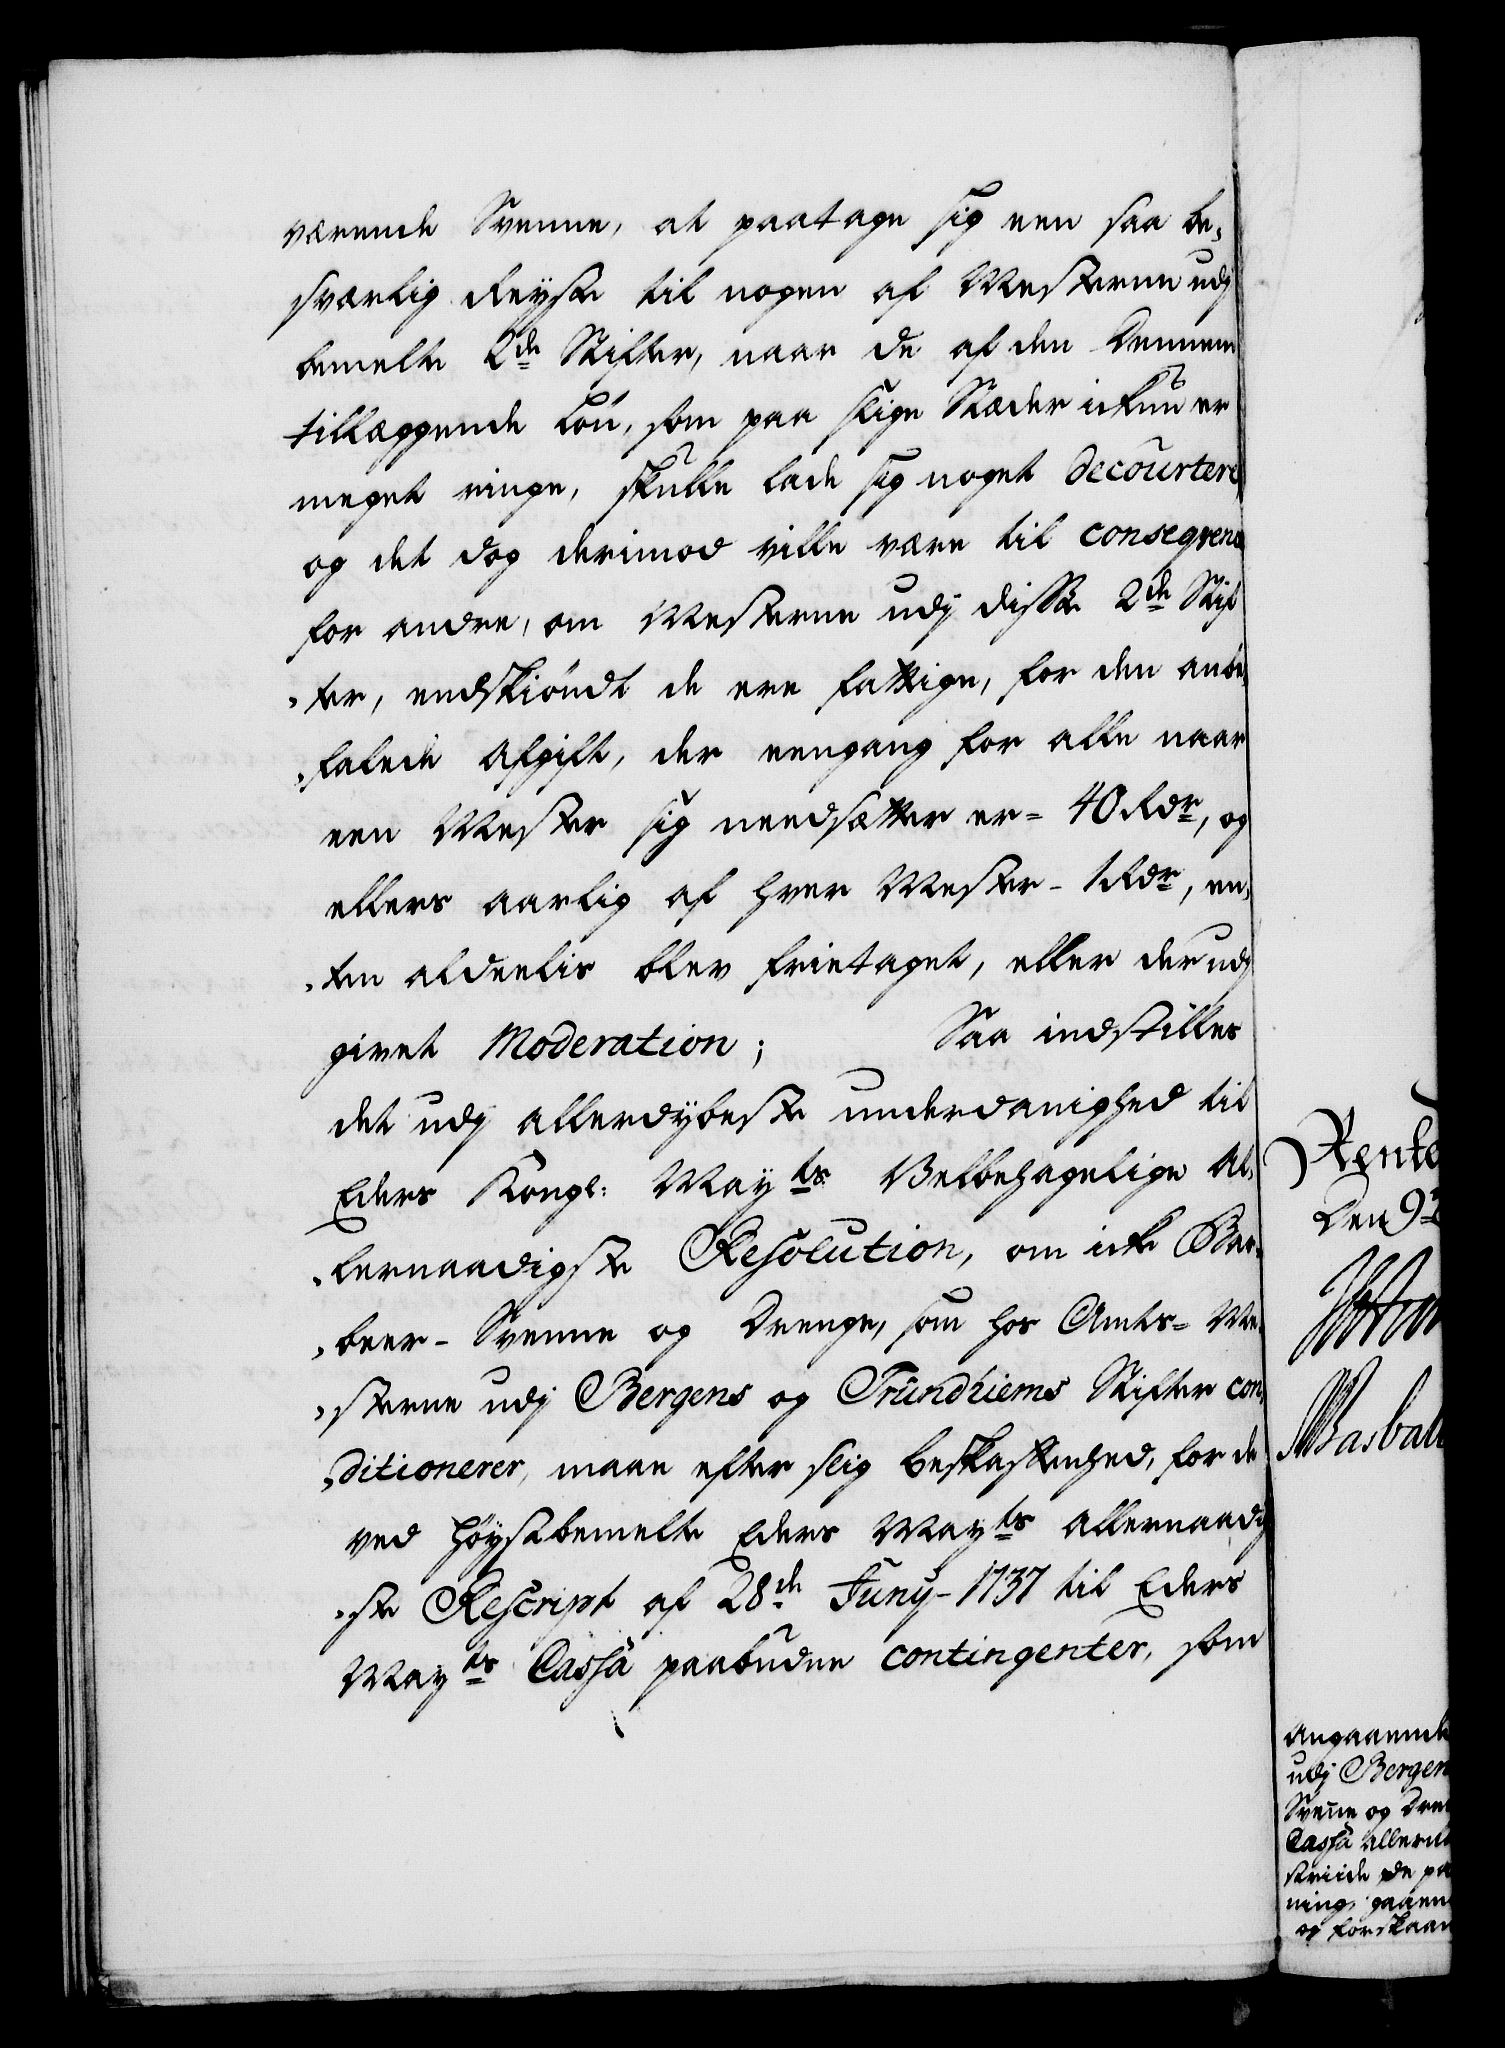 værende Svenne, at paatage sig een saa be-
sværlig Reyse til nogen af Mesterne udj
bemelte 2de Stifter, naar de af den Dennem
tillæggende Løn, som paa slige Stæder ickun er
meget ringe, skulle lade sig noget decourtere
og det dog derimod ville være til conseqvence
for andre, om Mesterne udj disse 2de Stif
-ter, endskiøndt de ere fattige, for den anbe-
-falede Afgift, der eengang for alle naar
een Mester sig needsætter er = 40 Rdr, og
ellers aarlig af hver Mester - 1 Rdr, en-
-ten aldeelis blev frietaget, eller der udj
givet Moderation; Saa indstilles
det udj allerdybeste underdanighed til
Eders Kongl: Mayts Velbehagelige Al-
-lernaadigste Resolution, om icke Bar-
-beer-Svenne og Drenge, som hos Amts-Me-
-sterne udj Bergens og Trundhiems Stifter con-
-ditionerer, maae efter slig beskaffenhed, for de
ved høystbemelte Eders Mayts allernaadig
-ste Rescript af 28de Juny-1737 til Eders
Mayts Cassa paabudne contingenter, som
Rente
den 9
Angaaende
udj Bergen
Svenne og Dren
Cassa allern
ning, gaaen
og forskaan